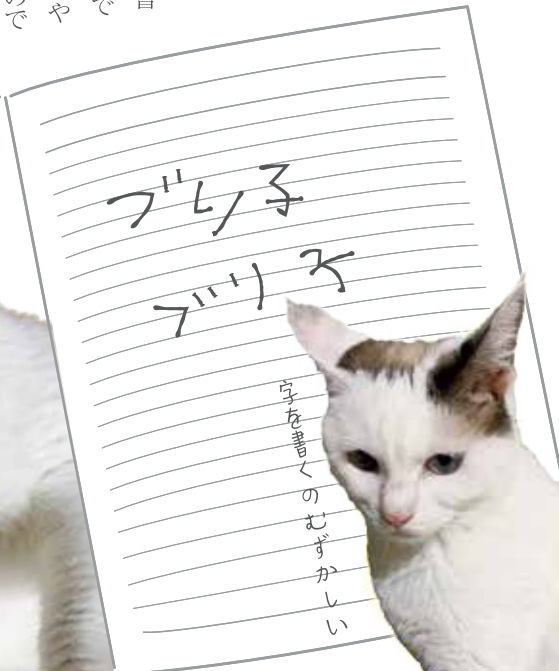 で
や
ので
ブリ子
ブリ子
字を書くのむずかしい